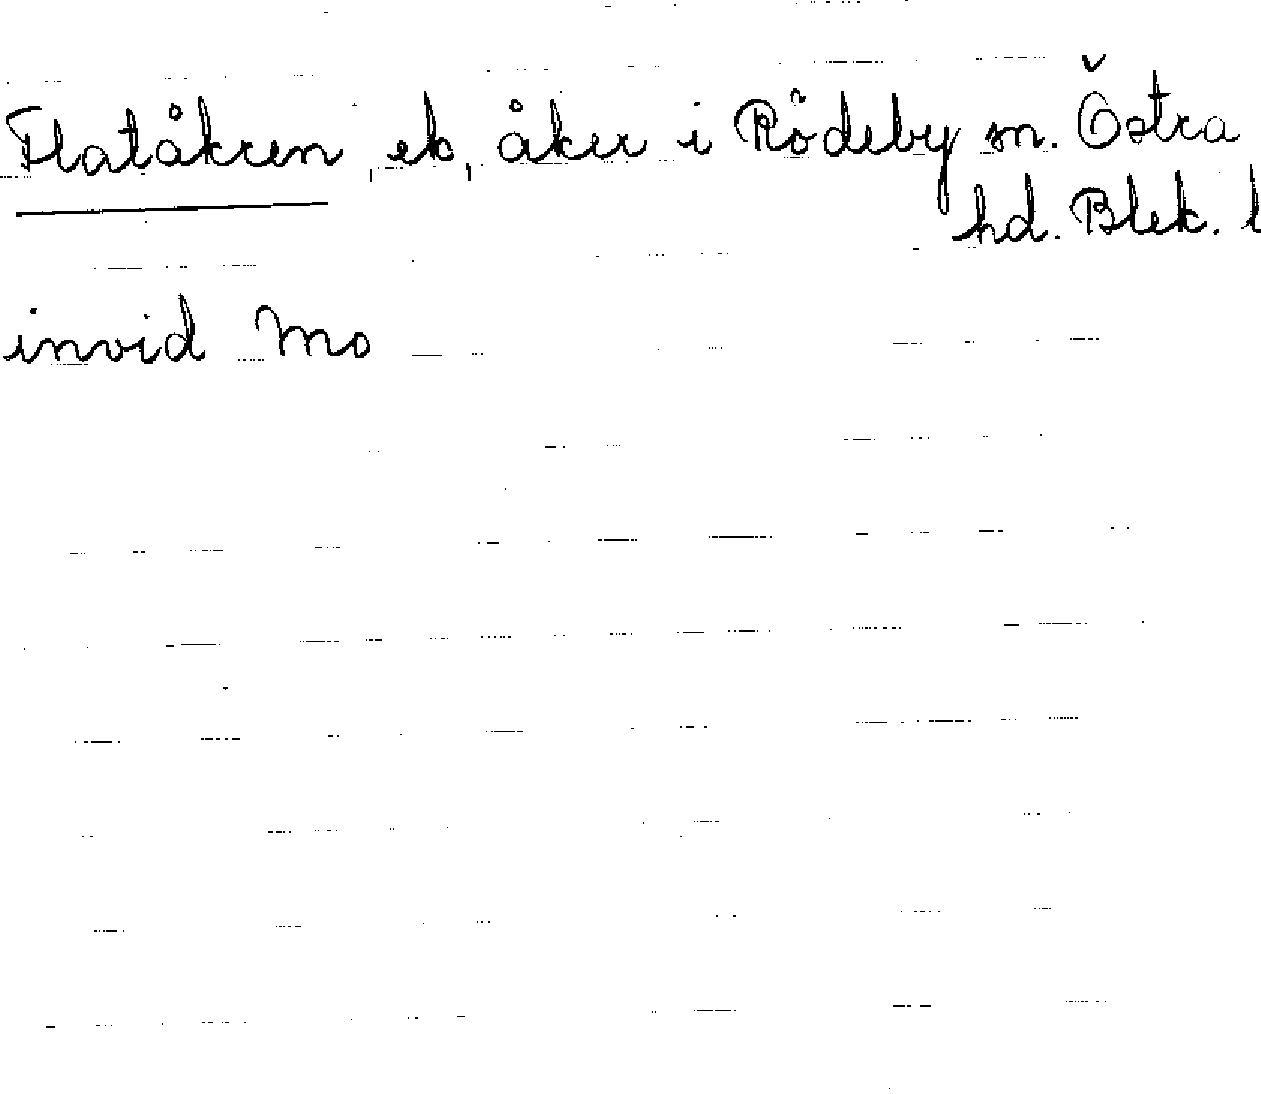 Flatåkren, ek, åker i Rödeby sn. Östra
hd. Blek. l
invid Mo